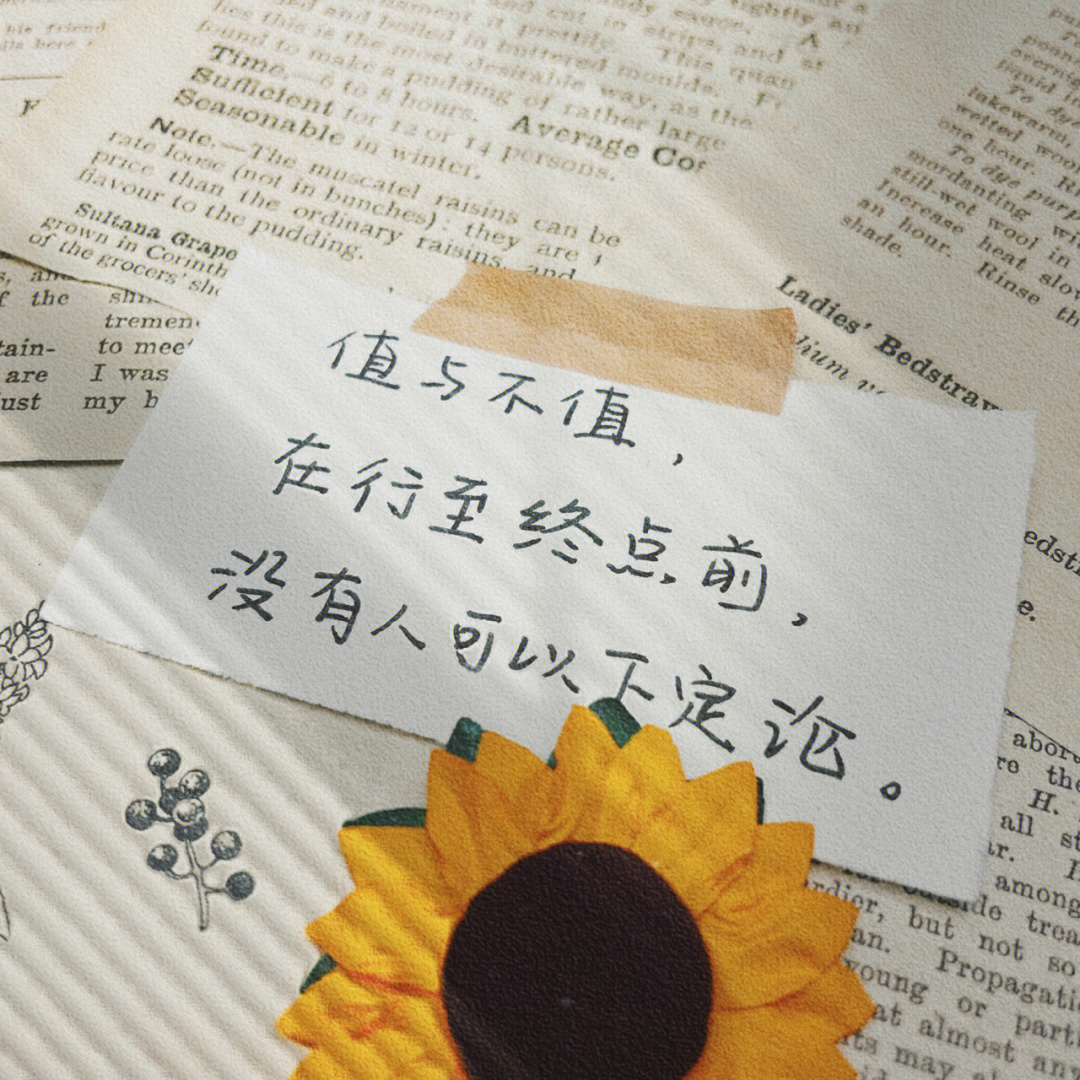 his friend
Time.—6 to 8 hours. Average Cos
Sufficient for 12 or 14 persons.
Seasonable in winter.
Note.—The muscatel raisins can be
rate loose (not in bunches): they are
price than the ordinary raisins, and
flavour to the pudding.
Sultana Grape
grown in Corinth
of the grocers' sho
and boiled in buttered moulds. This quan
this is the most desirable way, as the
found to make a pudding of rather large
To dye
lakeward
wetted wool
one hour. Ri
To dye purp
mordanting wi
still-wet wool in
Increase heat slow
an hour. Rinse th
shade.
Ladies' Bedstraw
of the
tremen
tain- to meet
are I was
ust my b
值与不值，
在行至终点前，
没有人可以下定论。
edst
e.
abor
re the
H.
all st
ar.
among
outside trea
rdier, but not so
an. Propagati
young or parti
at almost any
its may